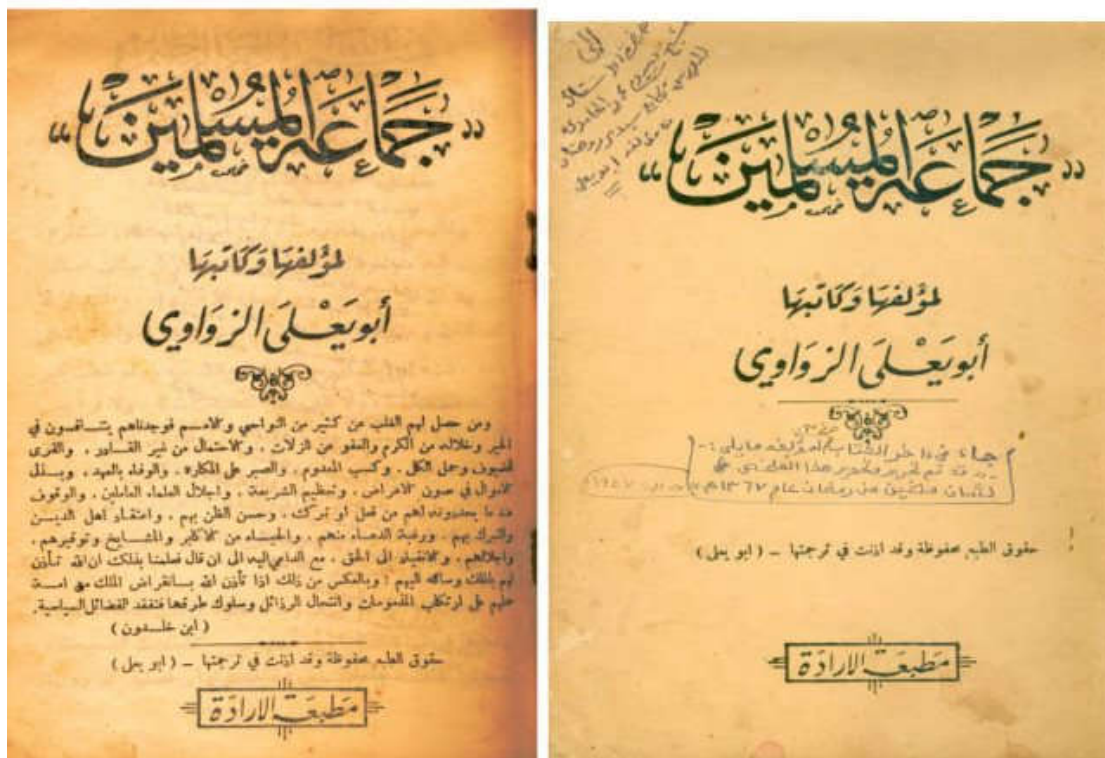 « جَمَاعَة المُسْلِمِين »
لمؤلفها وكاتبها
أبو يَعْلَى الزوَاوي
ومن حصل لهم الغلب من كثير من النواحي والامم فوجدناهم يتنافسون في
الخير وخلاله من الكرم والعفو عن الزلات ، والاحتمال من غير القادر ، والقرى
للضيوف وحمل الكل ، وكسب المعدوم ، والصبر على المكاره ، والوفاء بالعهد ، وبذل
الاموال في صون الاعراض ، وتعظيم الشريعة ، واجلال العلماء العاملين ، والوقوف
عند ما يحددونه لهم من فعل أو ترك ، وحسن الظن بهم ، واعتقاد اهل الديـن
والتبرك بهم ، ورغبة الدعاء منهم ، والحياء من الاكابر والمشايخ وتوقيرهم ،
واجلالهم ، والانقياد الى الحق ، مع الداعي اليه الى ان قال فعلمنا بذلك ان الله تـأذن
لهم بالملك وساقه اليهم : وبالعكس من ذلك اذا تأذن الله بـانقراض الملك من امـة
حملهم على ارتكاب المذمومات وانتحال الرذائل وسلوك طرقها فتفقد الفضائل السياسية
( ابن خلـدون )
حقوق الطبع محفوظة وقد اذنت في ترجمتها – ( ابو يعلى )
مَطبعَة الإرَادَة
الى
« جَمَاعَة المُسْلِمِين »
لمؤلفها وكاتبها
أبو يَعْلَى الزوَاوي
جاء في آخر الكتاب لمؤلفه ما يلي :-
قد تم تحرير وتحبير هذا
لثمان مضين من رمضان عام ١٣٦٧هـ
حقوق الطبع محفوظة وقد اذنت في ترجمتها – ( ابو يعلى )
مَطبعَة الإرَادَة